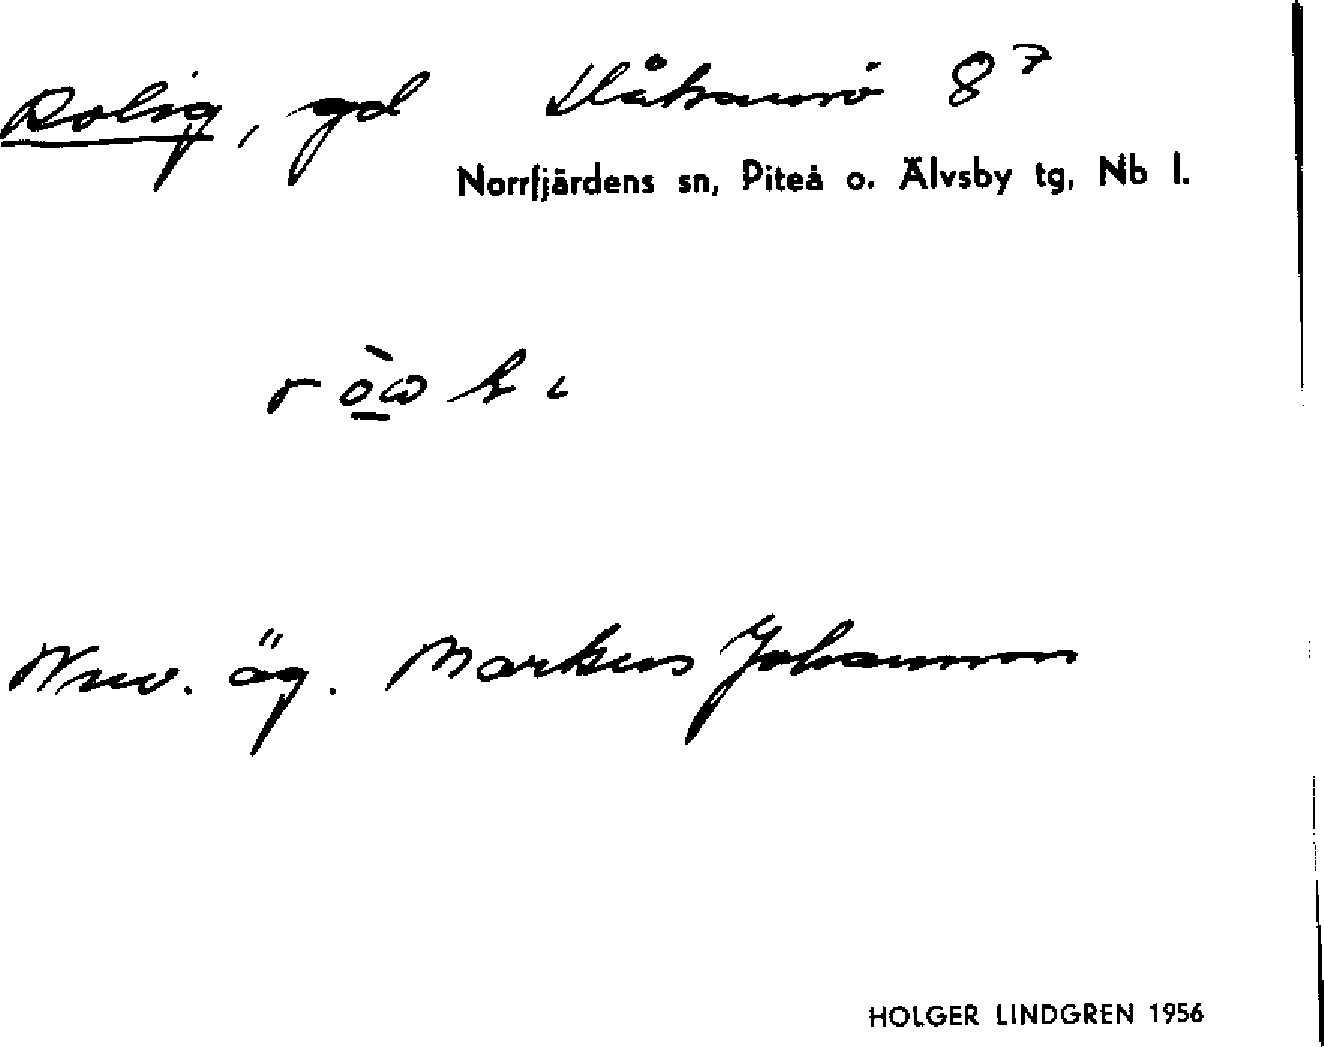 Rolig, gd Håkansö 8⁷
Norrfjärdens sn, Piteå o. Älvsby tg, Nb l.
Nuv. äg. Markus Johansson
HOLGER LINDGREN 1956